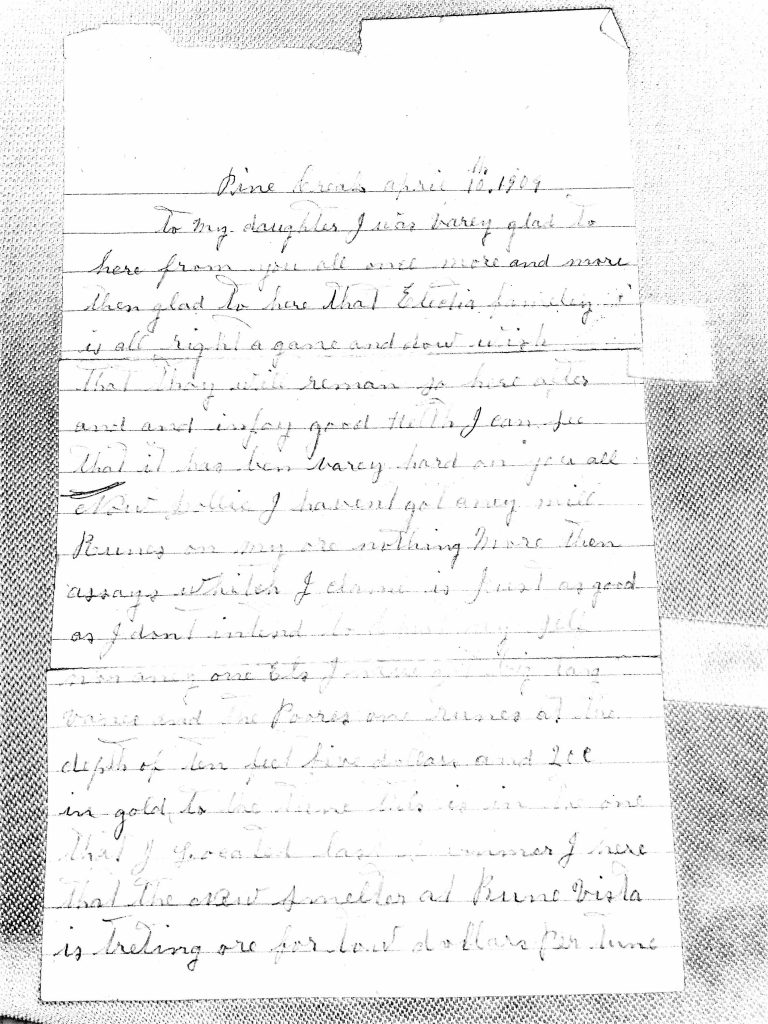 Pine Creak april 10th. 1909
To my daughter I was varey glad to
here from you all once more and more
then glad to here that Electia fameley
is all right a game and dow wish
that thay will reman so here after
and and injoy good Helth I can see
that it has ben varey hard on you all
Now Dollie I havent got aney mill
Runes on my ore nothing More then
assays whitch I clame is Just as good
as I dont intend to my self
nor aney one Els
varies and the Poores one runes at the
depth of ten feet five dollars and 20c
in gold, to the tune this is in the one
that I Located last summer I here
that the New smelter at Bune Vista
is treting ore for tow dollars Per tune